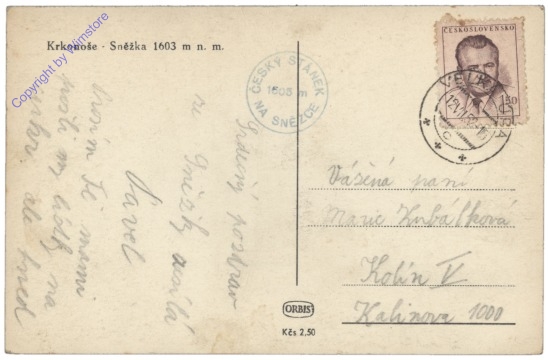 Krkonoše - Sněžka 1603 m n. m.
Copyright by Wimstore
ČESKÝ STÁNEK
1603 m
NA SNĚŽCE
ČESKOSLOVENSKO
1,50
VELK
Srdečný pozdrav
ze Sněžky
Pavel
Prosím Tě mami
pošli mi
ale hned
Vážená paní
Marie Kubálková
Kolín V
Kalinova 1000
ORBIS
Kčs 2,50